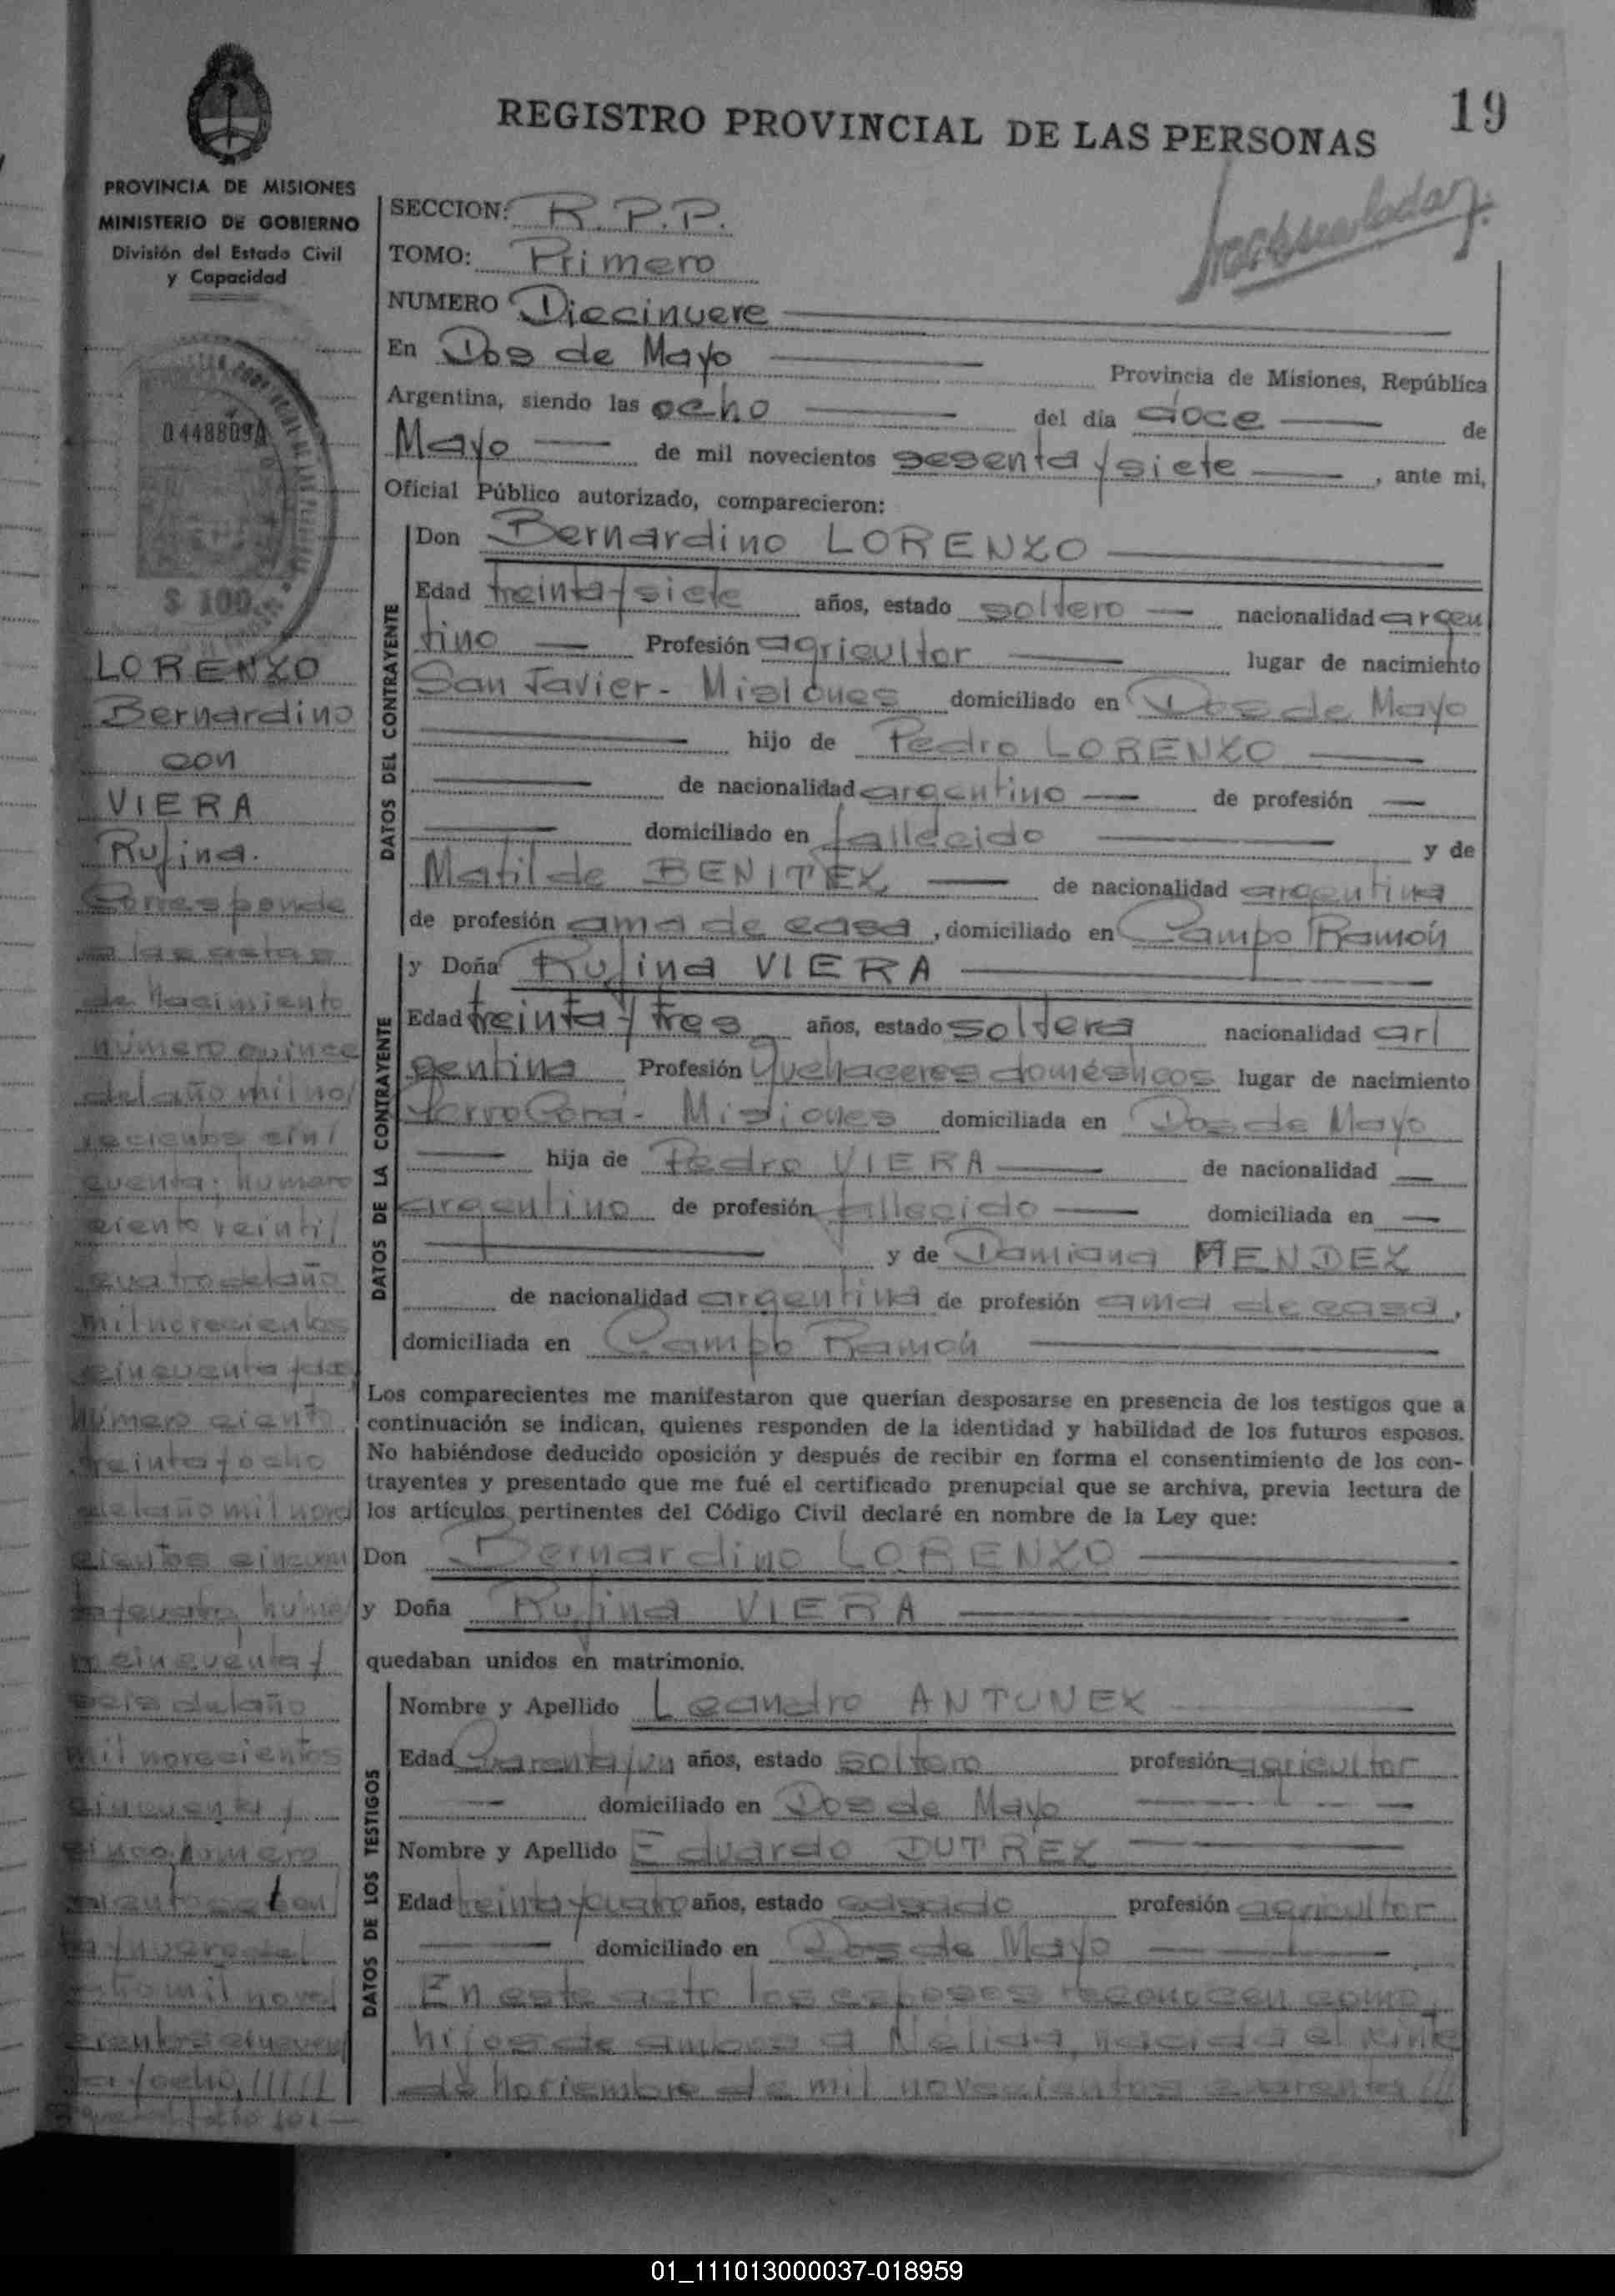 19
REGISTRO PROVINCIAL DE LAS PERSONAS
PROVINCIA DE MISIONES
MINISTERIO DE GOBIERNO
División del Estado Civil
y Capacidad
0448809
$ 100.
LORENZO
Bernardino
con
VIERA
Rufina.
Corresponde
a las actas
de Nacimiento
número quince
del año mil no/
vecientos cin/
cuenta; número
ciento veinti/
cuatro del año
mil novecientos
cincuenta y
número ciento
treinta y ocho
del año mil nove
cientos cincuen
ta y cuatro, núme
ro cincuenta y
seis del año
mil novecientos
cincuenta y
cinco, número
ta y nueve del
año mil nove/
cientos cincuen
ta y ocho, //////
SECCION: R.P.P.
TOMO: Primero
NUMERO Diecinueve
En Dos de Mayo Provincia de Misiones, República
Argentina, siendo las ocho del día doce de
Mayo de mil novecientos sesenta y siete, ante mi,
Oficial Público autorizado, comparecieron:
DATOS DEL CONTRAYENTE
Don Bernardino LORENZO
Edad treinta y siete años, estado soltero nacionalidad argen
tino Profesión agricultor lugar de nacimiento
San Javier - Misiones domiciliado en Dos de Mayo
hijo de Pedro LORENZO
de nacionalidad argentino de profesión
domiciliado en fallecido y de
Matilde BENITEZ de nacionalidad argentina
de profesión ama de casa, domiciliado en Campo Ramón
DATOS DE LA CONTRAYENTE
y Doña Rufina VIERA
Edad treinta y tres años, estado soltera nacionalidad ar/
gentina Profesión Quehaceres domésticos lugar de nacimiento
Cerro Corá - Misiones domiciliada en Dos de Mayo
hija de Pedro VIERA de nacionalidad
argentino de profesión fallecido domiciliada en
y de Damiana MENDEZ
de nacionalidad argentina de profesión ama de casa,
domiciliada en Campo Ramón
Los comparecientes me manifestaron que querían desposarse en presencia de los testigos que a
continuación se indican, quienes responden de la identidad y habilidad de los futuros esposos.
No habiéndose deducido oposición y después de recibir en forma el consentimiento de los con-
trayentes y presentado que me fué el certificado prenupcial que se archiva, previa lectura de
los artículos pertinentes del Código Civil declaré en nombre de la Ley que:
Don Bernardino LORENZO
y Doña Rufina VIERA
quedaban unidos en matrimonio.
DATOS DE LOS TESTIGOS
Nombre y Apellido Leandro ANTUNEZ
Edad Cuarenta y un años, estado soltero profesión agricultor
domiciliado en Dos de Mayo
Nombre y Apellido Eduardo DUTREZ
Edad treinta y cuatro años, estado casado profesión agricultor
domiciliado en Dos de Mayo
En este acto los esposos reconocen como
hijos de ambos a Nélida, nacida el veinte
de noviembre de mil novecientos cuarenta ///
01_111013000037-018959